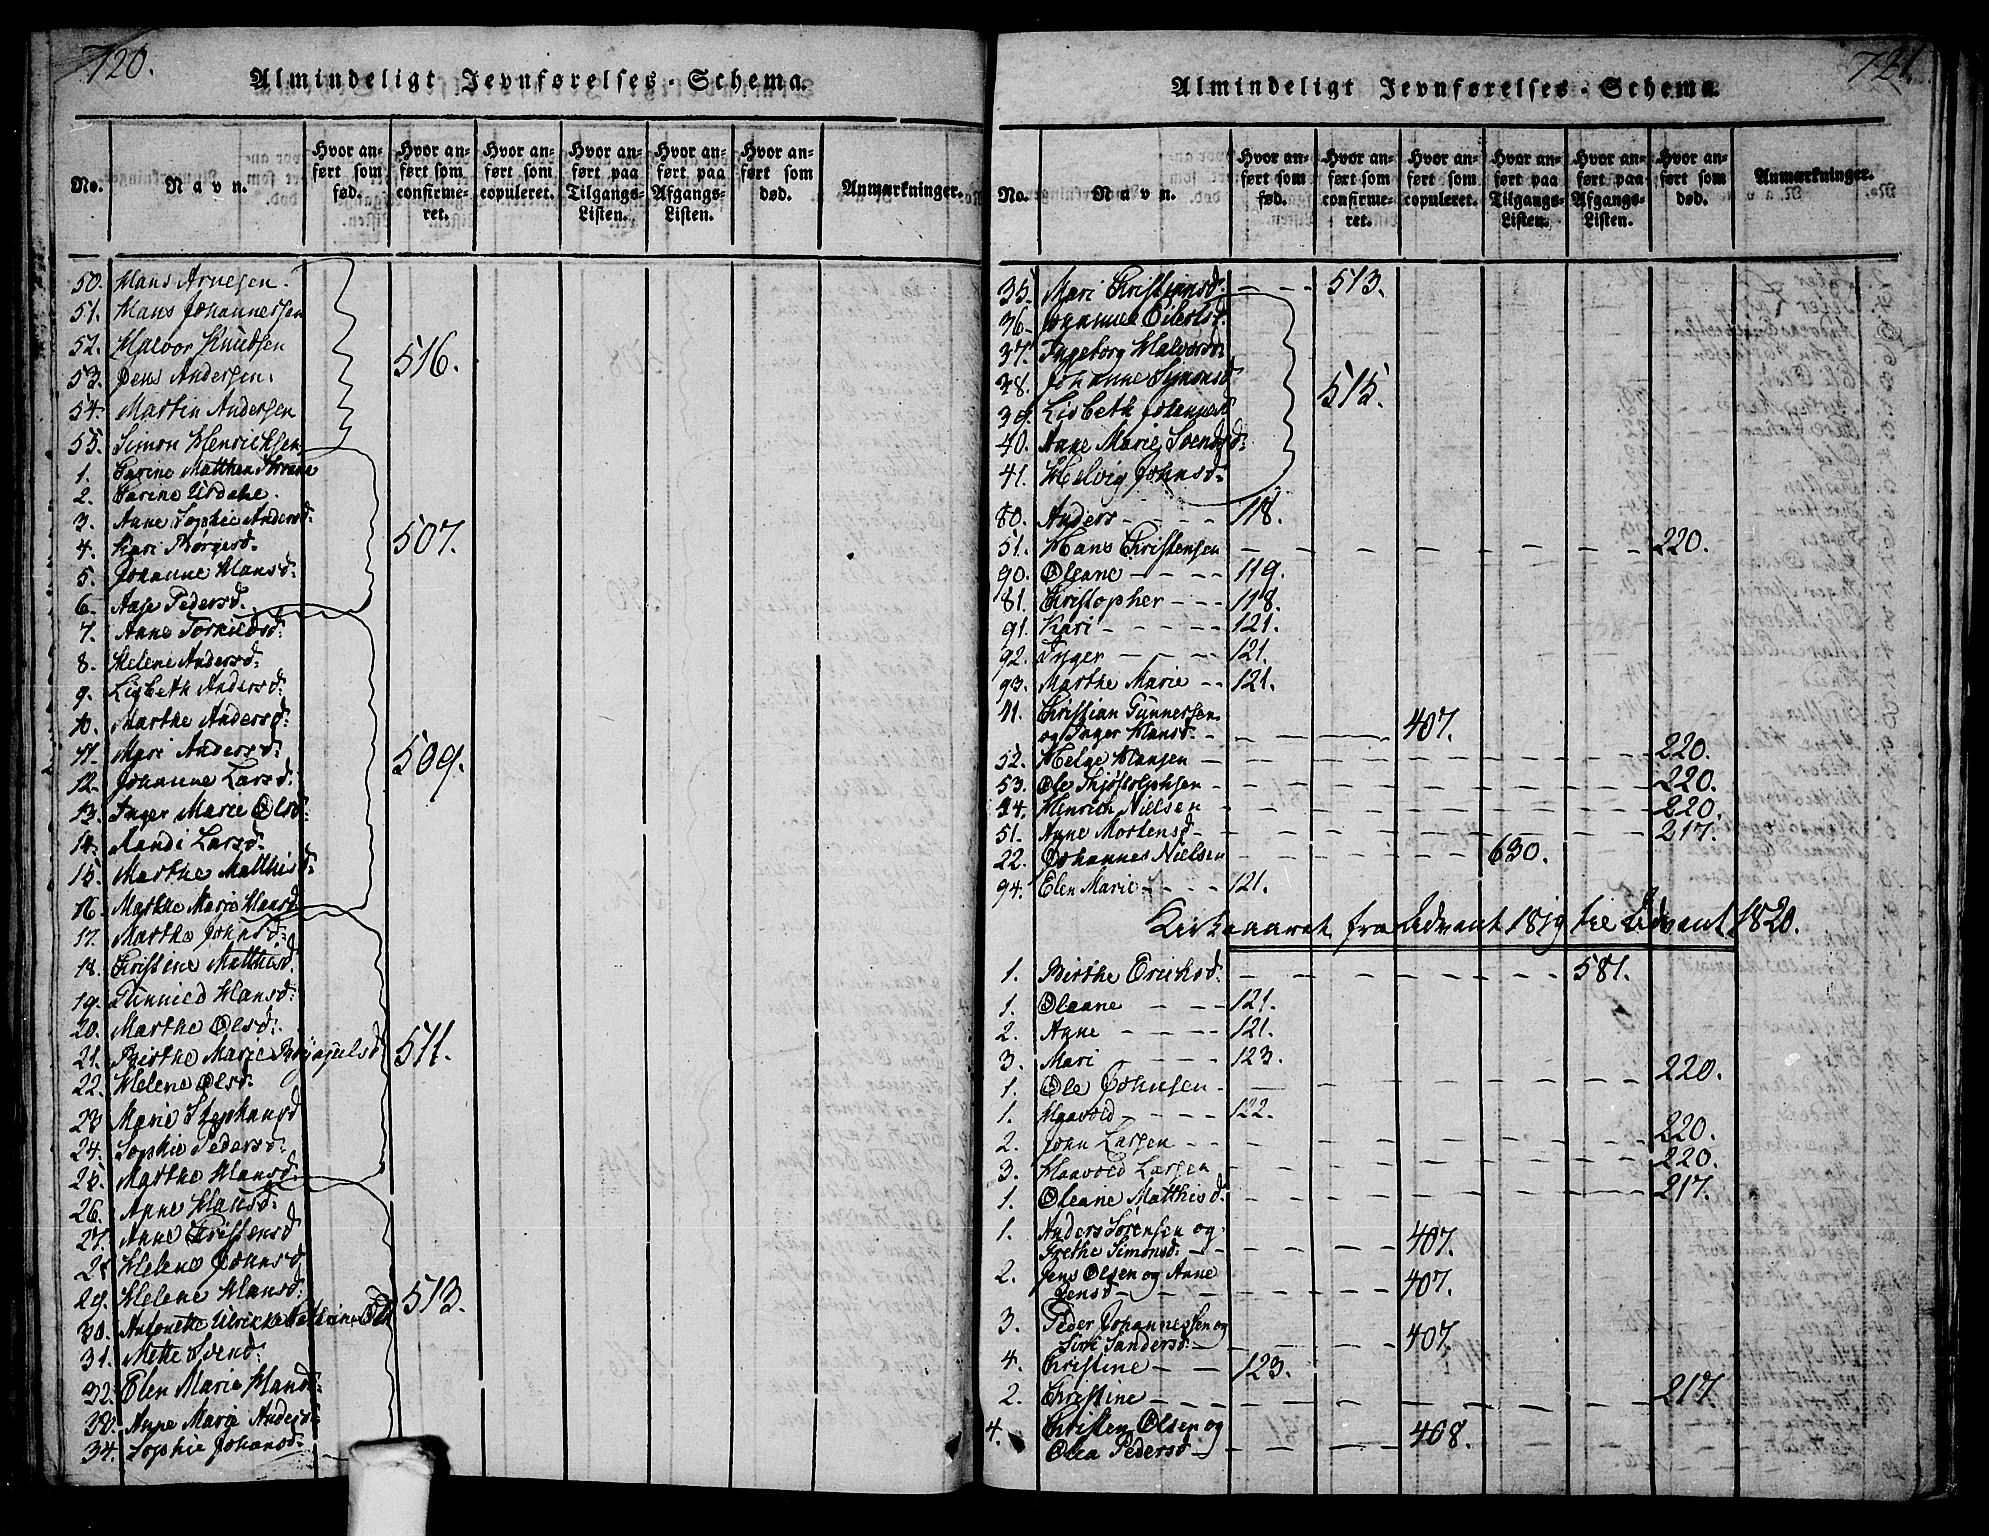 720.
Almindeligt Jevnførelses-Schema.
No.
Navn.
Hvor anført som fød.
Hvor anført som confirmeret.
Hvor anført som copuleret.
Hvor anført paa Tilgangs-Listen.
Hvor anført paa Afgangs-Listen.
Hvor anført som død.
Anmærkninger.
50. Hans Arnesen.
51. Hans Johannessen
52. Halvor Knudsen
53. Jens Andersen. 516.
54. Martin Andersen
55. Simon Henrichsen
1. Carine Matthea
2. Carine Urdahl.
3. Anne Sophie Andersd:
4. Kari Børgesd. 507.
5. Johanne Hansd:
6. Aase Pedersd.
7. Anne Torkildsd:
8. Helene Andersd:
9. Lisbeth Andersd:
10. Marthe Andersd:
11. Mari Andersd: 509.
12. Johanne Larsd:
13. Inger Marie Olsd:
14. Randi Larsd.
15. Marthe Matthisd:
16. Marthe Marie Hansd
17. Marthe Johnsd:
18. Kristene Matthisd.
19. Gunnild Hansd:
20. Marthe Olsd:
21. Birthe Marie 511.
22. Helene Olsd:
23 Marie Stephansd
24. Sophie Pedersd:
25. Marthe Hansd.
26. Anne Hansd:
27. Anne Cristensd
28 Helene Johnsd
29. Helene Hansd: 513.
30. Antonette Ulrikke
31. Mette Svend:
32. Elen Marie Hansd:
33. Anne Marie Andersd:
34. Sophie Johansd:
721.
Almindeligt Jevnførelses-Schema.
No.
Navn.
Hvor anført som fød.
Hvor anført som confirmeret.
Hvor anført som copuleret.
Hvor anført paa Tilgangs-Listen.
Hvor anført paa Afgangs-Listen.
Hvor anført som død.
Anmærkninger.
35. Mari Christiansd. - - - 513.
36. Johanne Eilertsd.
37. Ingeborg Halvorsd:
38. Johanne Simonsd 515.
39. Lisbeth Johannesd
40. Anne Marie Svendsd:
41. Helvig Johnsd:
80. Anders - - - - 118.
51. Hans Christensen - - - - - - 220.
90. Oleane - - - - 119.
81. Christopher - - - 118.
91. Kari - - - - - 121.
92. Inger - - - - 121.
93. Marthe Marie - - 121.
41. Christian Gunnersen
og Inger Hansd. - - - - 407.
52. Helge Hansen - - - - - - 220.
53. Ole - - - - - - 220.
54. Henrich Nielsen - - - - - - 220.
51. Anne Mortensd - - - - - - 217.
22. Johannes Nielsen - - - - - 630.
94. Elen Marie - - - - 121.
Kirkeaaret fra Advent 1819 til Advent 1820.
1. Birthe Ericksd. - - - - - - 581.
1. Oleane - - - 121.
2. Anne - - - - 121.
3. Mari - - - - 123.
1. Ole Johnsen - - - - - - 220.
1. Haavold - - - - 122.
2. John Larsen - - - - - - 220.
3. Haavold Larsen - - - - - - 220.
1. Oleane Matthisd. - - - - - - 217.
1. Anders Sørensen og
Grethe Simonsd: - - - - 407.
2. Jens Olsen og Anne
Jensd - - - - 407.
3. Peder Johannessen og
Siri Sandersd. - - - - 407.
4. Christine - - - 123.
2. Christine - - - - - - 217.
4. Christen Olsen og
Olea Pedersd - - - - 408.